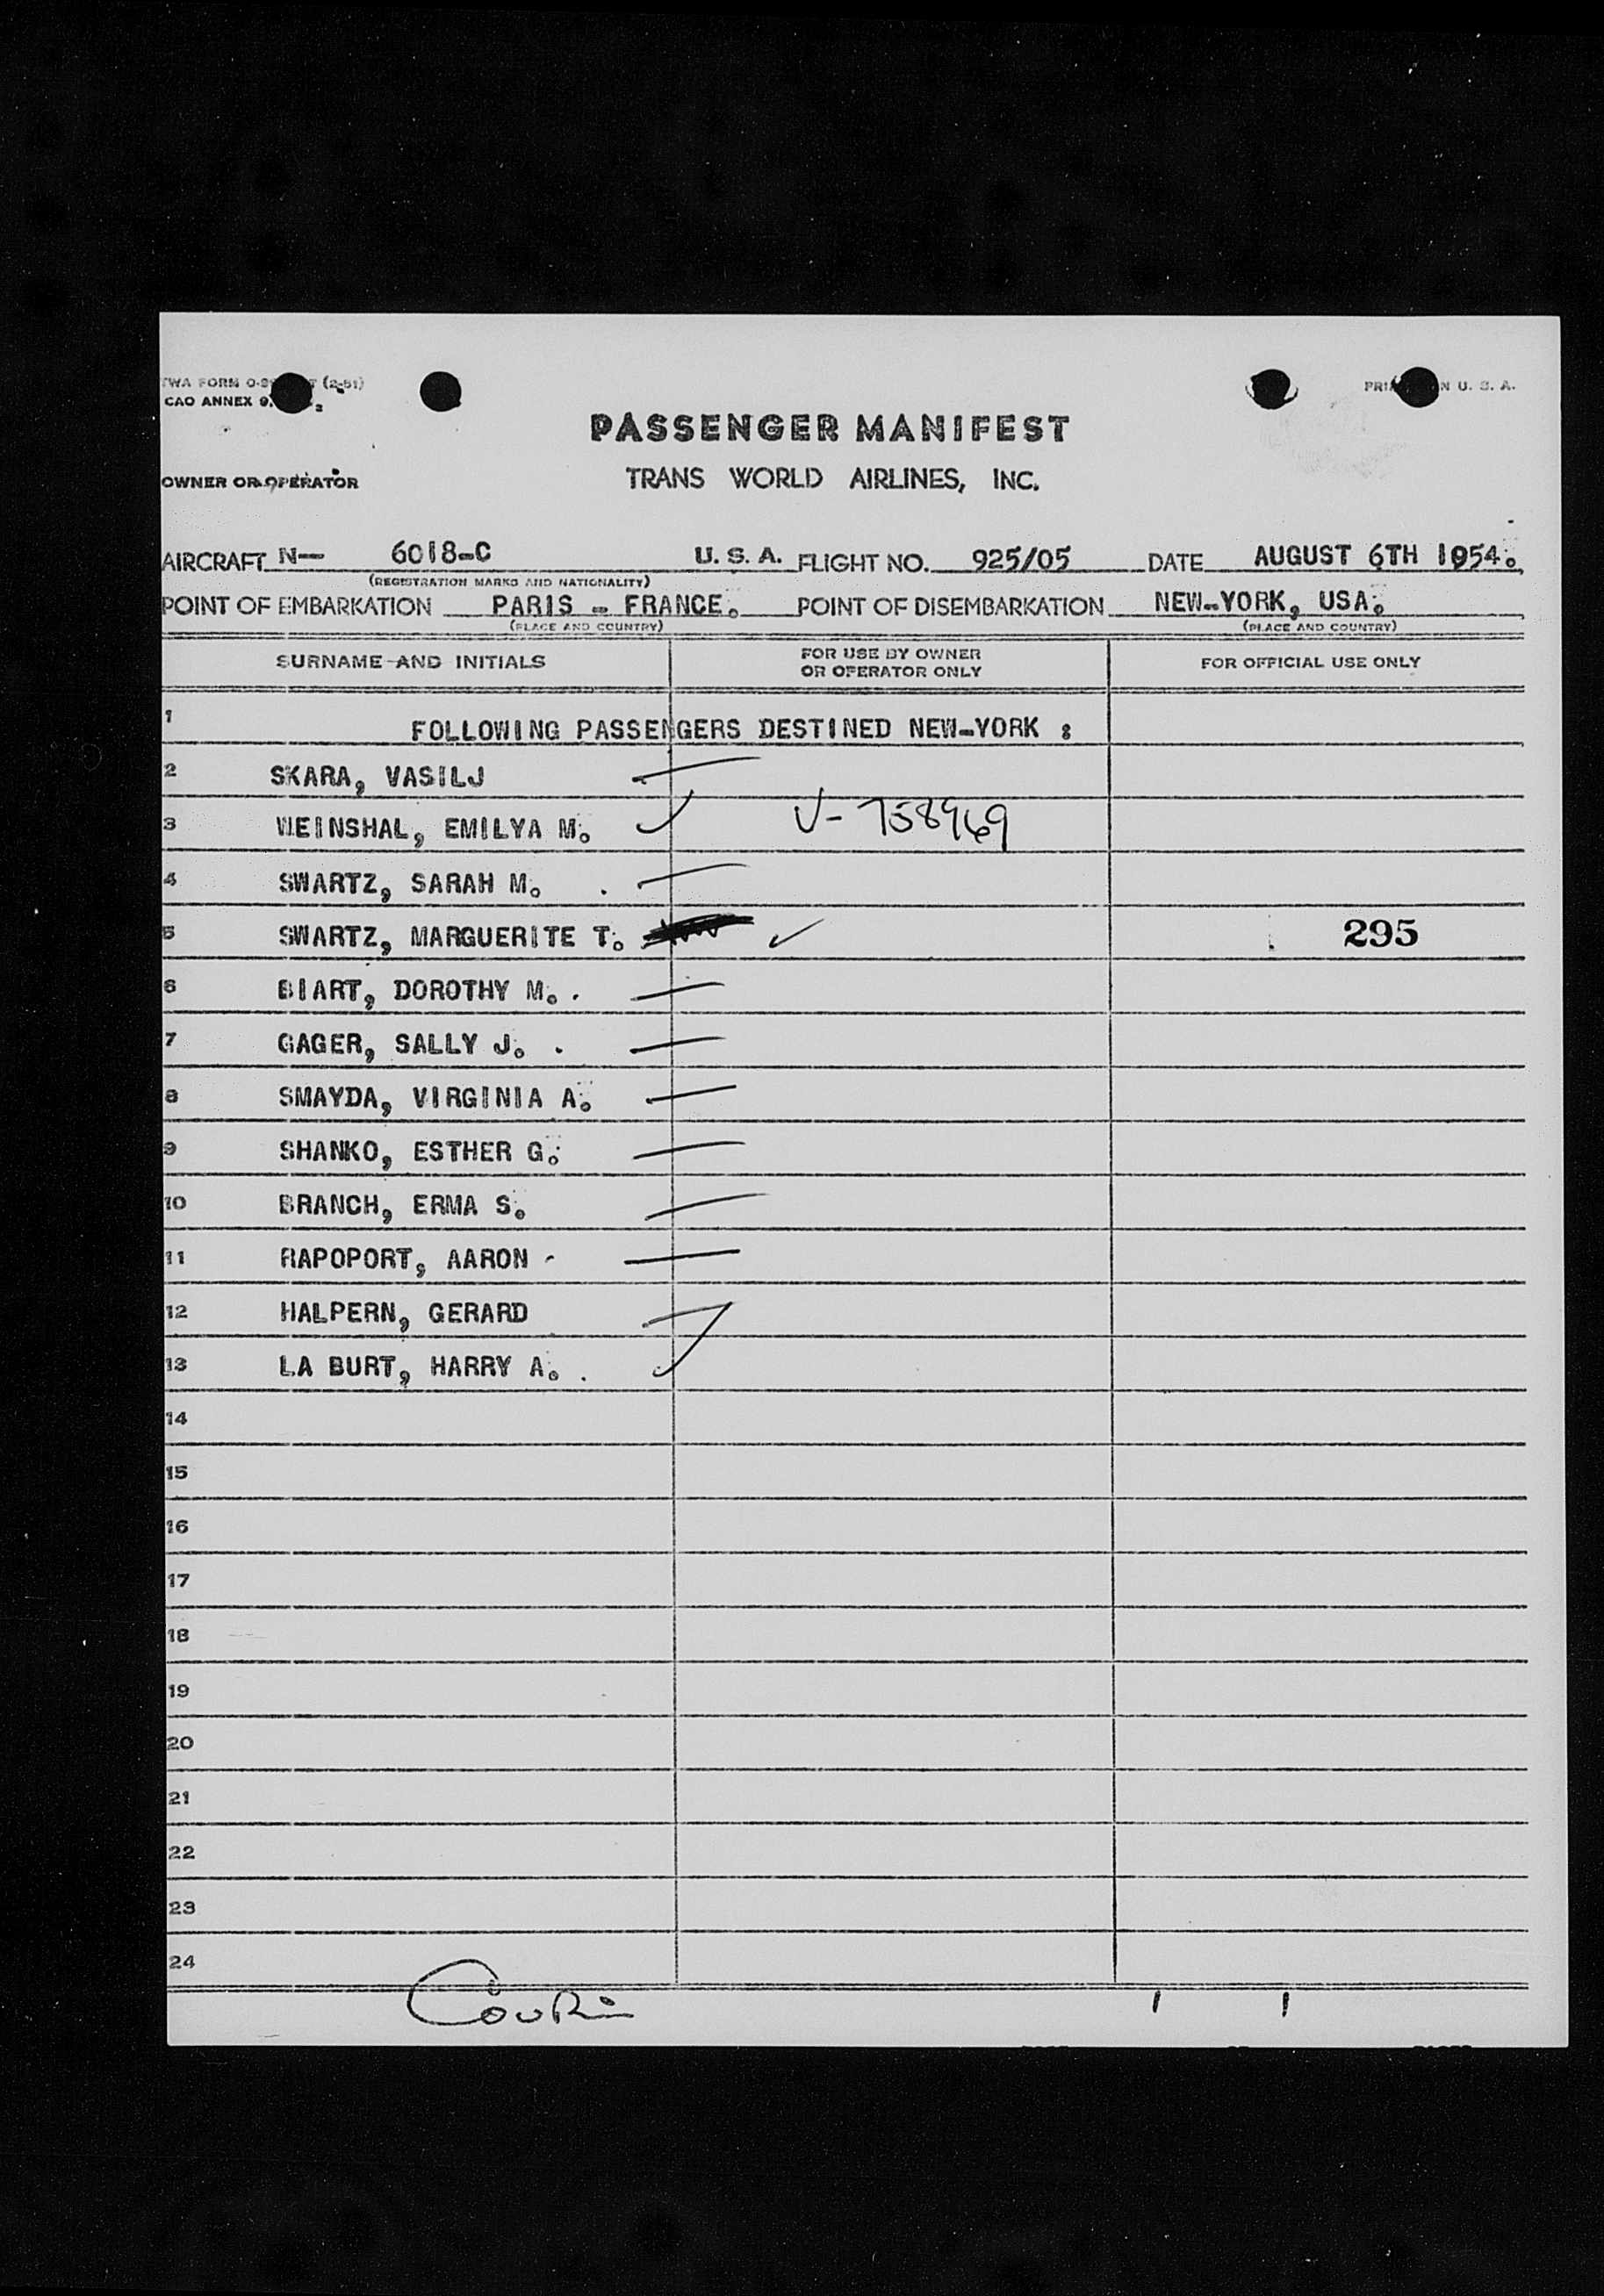 TWA FORM O- (2-51)
CAO ANNEX 9,
N U. S. A.
PASSENGER MANIFEST
OWNER OR OPERATOR TRANS WORLD AIRLINES, INC.
AIRCRAFT N— 6018-C U. S. A. FLIGHT NO. 925/05 DATE AUGUST 6TH 1954.
(REGISTRATION MARKS AND NATIONALITY)
POINT OF EMBARKATION PARIS - FRANCE. POINT OF DISEMBARKATION NEW-YORK, USA.
(PLACE AND COUNTRY) (PLACE AND COUNTRY)
SURNAME AND INITIALS FOR USE BY OWNER OR OPERATOR ONLY FOR OFFICIAL USE ONLY
1 FOLLOWING PASSENGERS DESTINED NEW-YORK :
2 SKARA, VASILJ
3 WEINSHAL, EMILYA M. V-758969
4 SWARTZ, SARAH M.
5 SWARTZ, MARGUERITE T. ✓ 295
6 BIART, DOROTHY M.
7 GAGER, SALLY J.
8 SMAYDA, VIRGINIA A.
9 SHANKO, ESTHER G.
10 BRANCH, ERMA S.
11 RAPOPORT, AARON
12 HALPERN, GERARD
13 LA BURT, HARRY A.
14
15
16
17
18
19
20
21
22
23
24